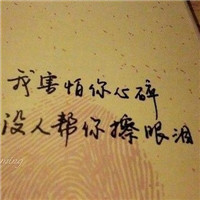 我害怕你心碎
没人帮你擦眼泪